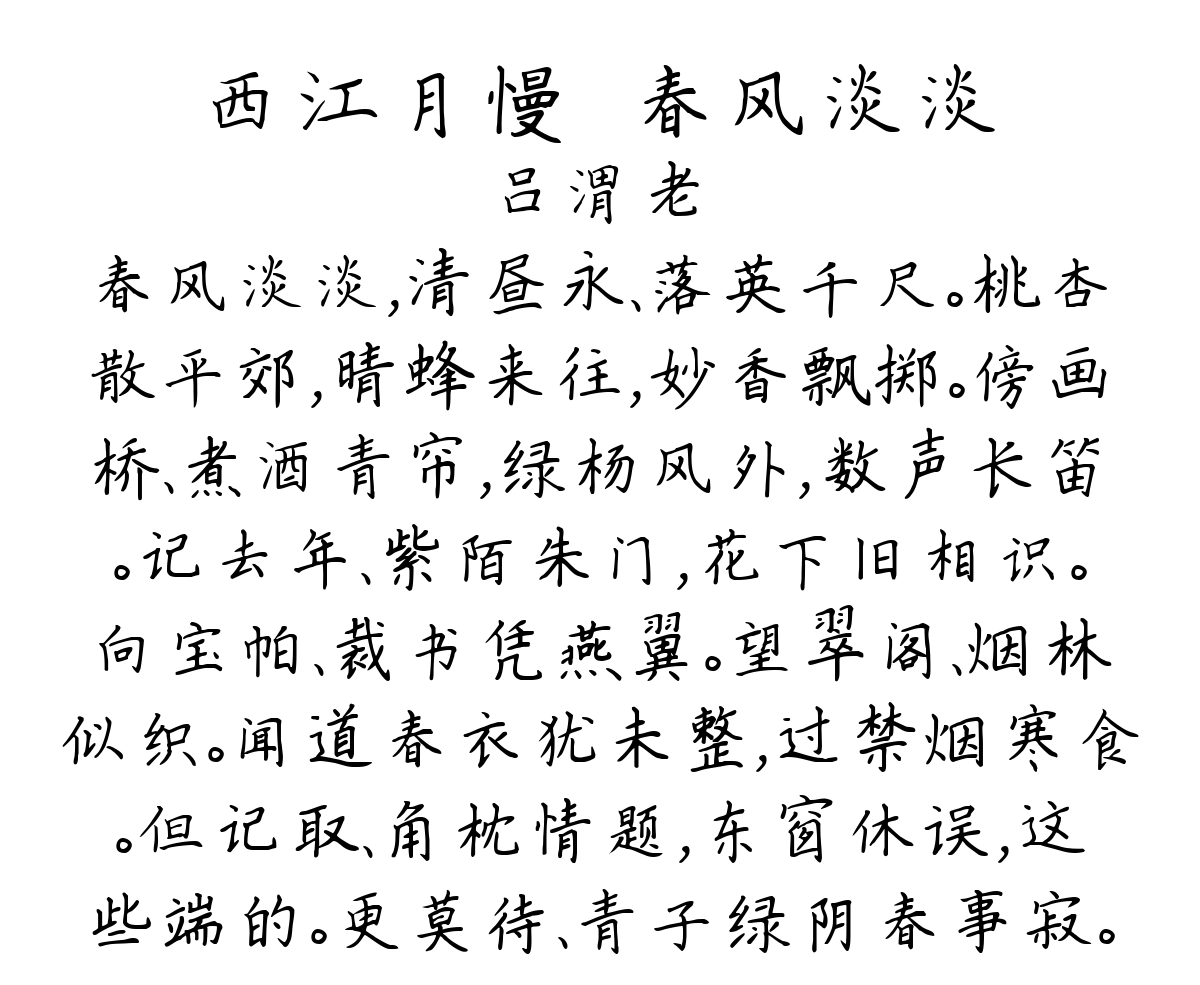 西江月慢 春风淡淡
吕渭老
春风淡淡,清昼永、落英千尺。桃杏
散平郊,晴蜂来往,妙香飘掷。傍画
桥、煮酒青帘,绿杨风外,数声长笛
。记去年、紫陌朱门,花下旧相识。
向宝帕、裁书凭燕翼。望翠阁、烟林
似织。闻道春衣犹未整,过禁烟寒食
。但记取、角枕情题,东窗休误,这
些端的。更莫待、青子绿阴春事寂。